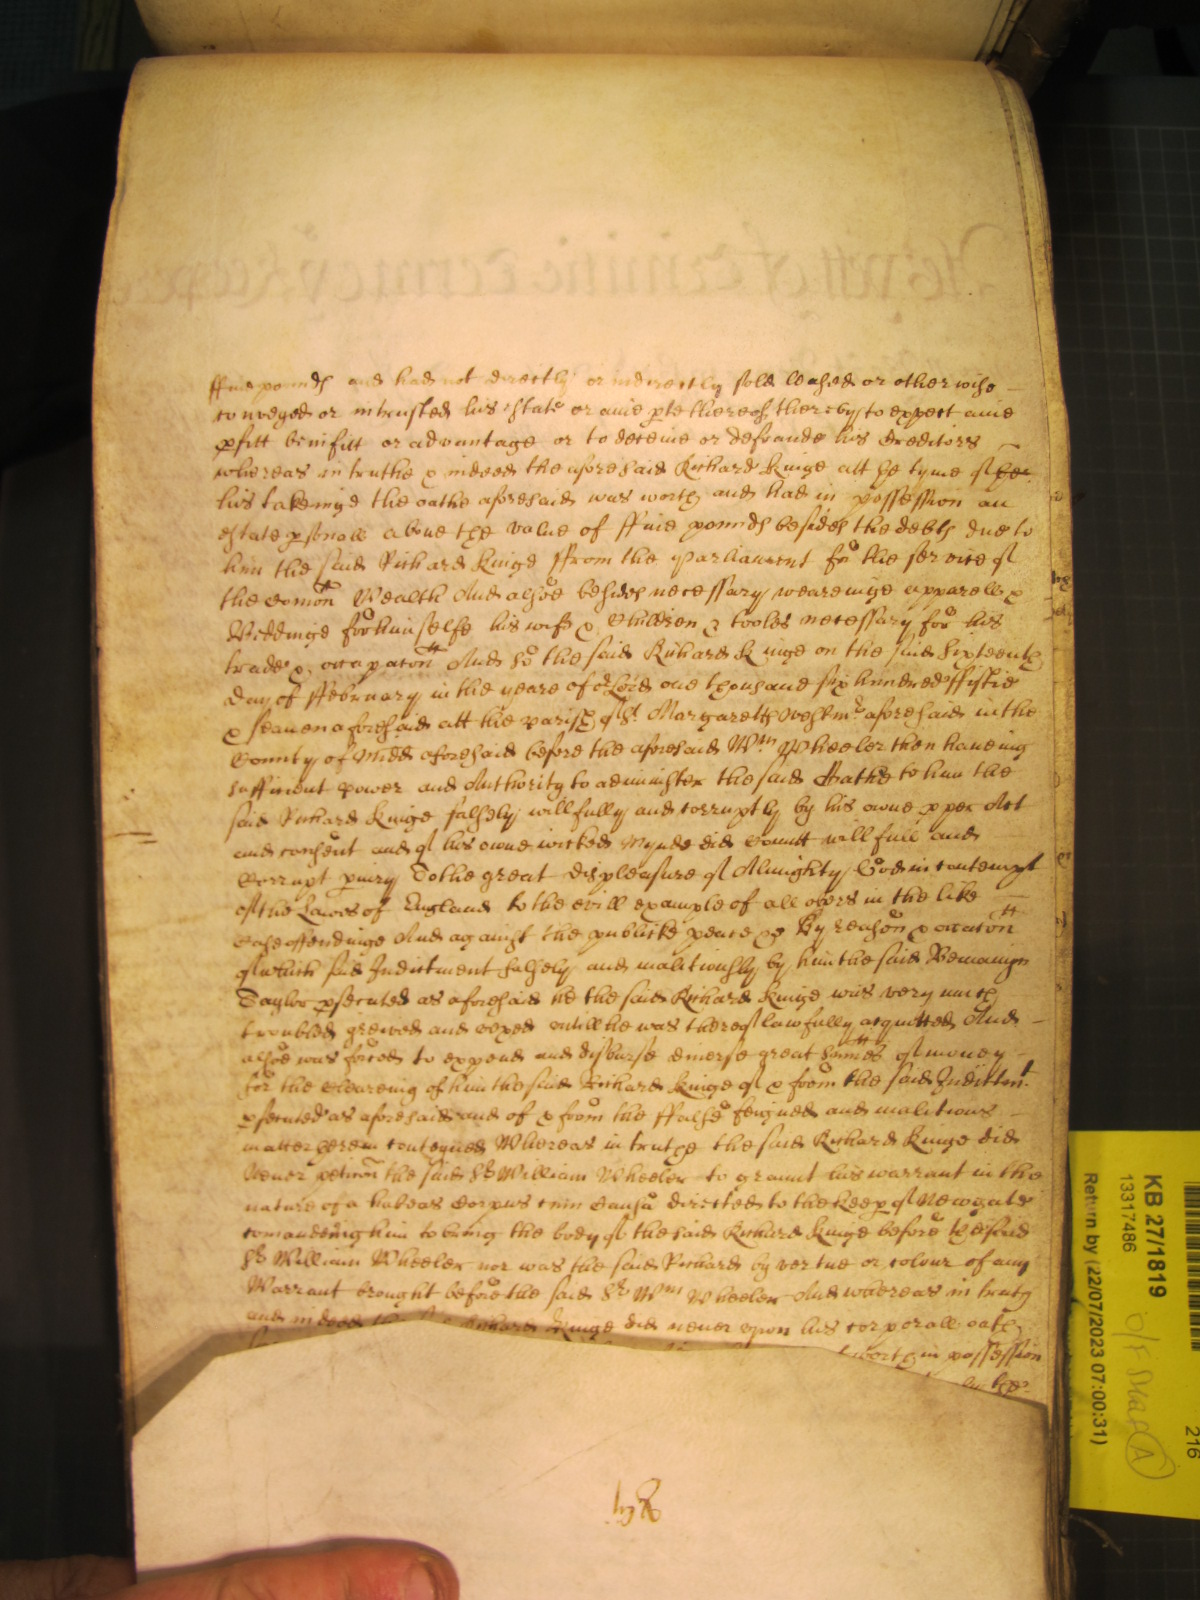 ffive pounds and had not directly or indirectly sold leased or otherwise
conveyed or intrusted his estate or anie pte thereof, thereby to expect anie
pfitt benifitt or advantage or to deceive or defraude his Creditors
whereas in truthe & indeed the aforesaid Richard Kinge att the tyme of
his takeinge the oathe aforesaid was worth and had in possession an
estate psonall above the value of ffive pounds besides the debts due to
him the said Richard Kinge ffrom the Parliament for the service of
the Comon Wealth And alsoe besides necessary weareinge apparell &
Beddinge for himselfe his wife & Children & tooles necessary for his
trade & occupaton And so the said Richard Kinge on the said sixteenth
day of ffebruary in the yeare of or Lord one thousand six hundred ffiftie
& seaven aforesaid att the parish of St Margaretts Westmr aforesaid in the
County of Midd aforesaid before the aforesaid Wm Wheeler then haveing
sufficient power and Authority to administer the said Oathe to him the
said Richard Kinge falsely willfully and corruptly by his owne pper Act
and consent and of his owne wicked Mynde did Comitt willfull and
Corrupt piury To the great displeasure of Almighty God in contempt
of the Lawes of England to the evill example of all others in the like
Case offendinge And against the publicke peace &c By reason & occaton
of which said Indictment falsely and malitiously by him the said Beniamyn
Taylor psecuted as aforesaid he the said Richard Kinge was very much
troubled greived and vexed untill he was thereof lawfully acquitted And
alsoe was forced to expend and disburse diverse great summes of money
for the clearing of him the said Richard Kinge of & from the said Indittmt
psecuted as aforesaid and of & from the ffalse feigned and malitious
matter therein conteyned Whereas in truthe the said Richard Kinge did
never peticon the said Sr William Wheeler to graunt his warrant in the
nature of a habeas Corpus cum Causa directed to the Keep of Newgate
comandeing him to bring the body of the said Richard Kinge before the said
Sr William Wheeler nor was the said Richard by vertue or colour of any
Warrant brought before the said Sr Wm Wheeler And whereas in truth
and indeed the said Richard Kinge did never upon his corporall oath
worth in possession
KB 27/1819
13317486
O/F Shelf A
Return by (22/07/2023 07:00:31)
216